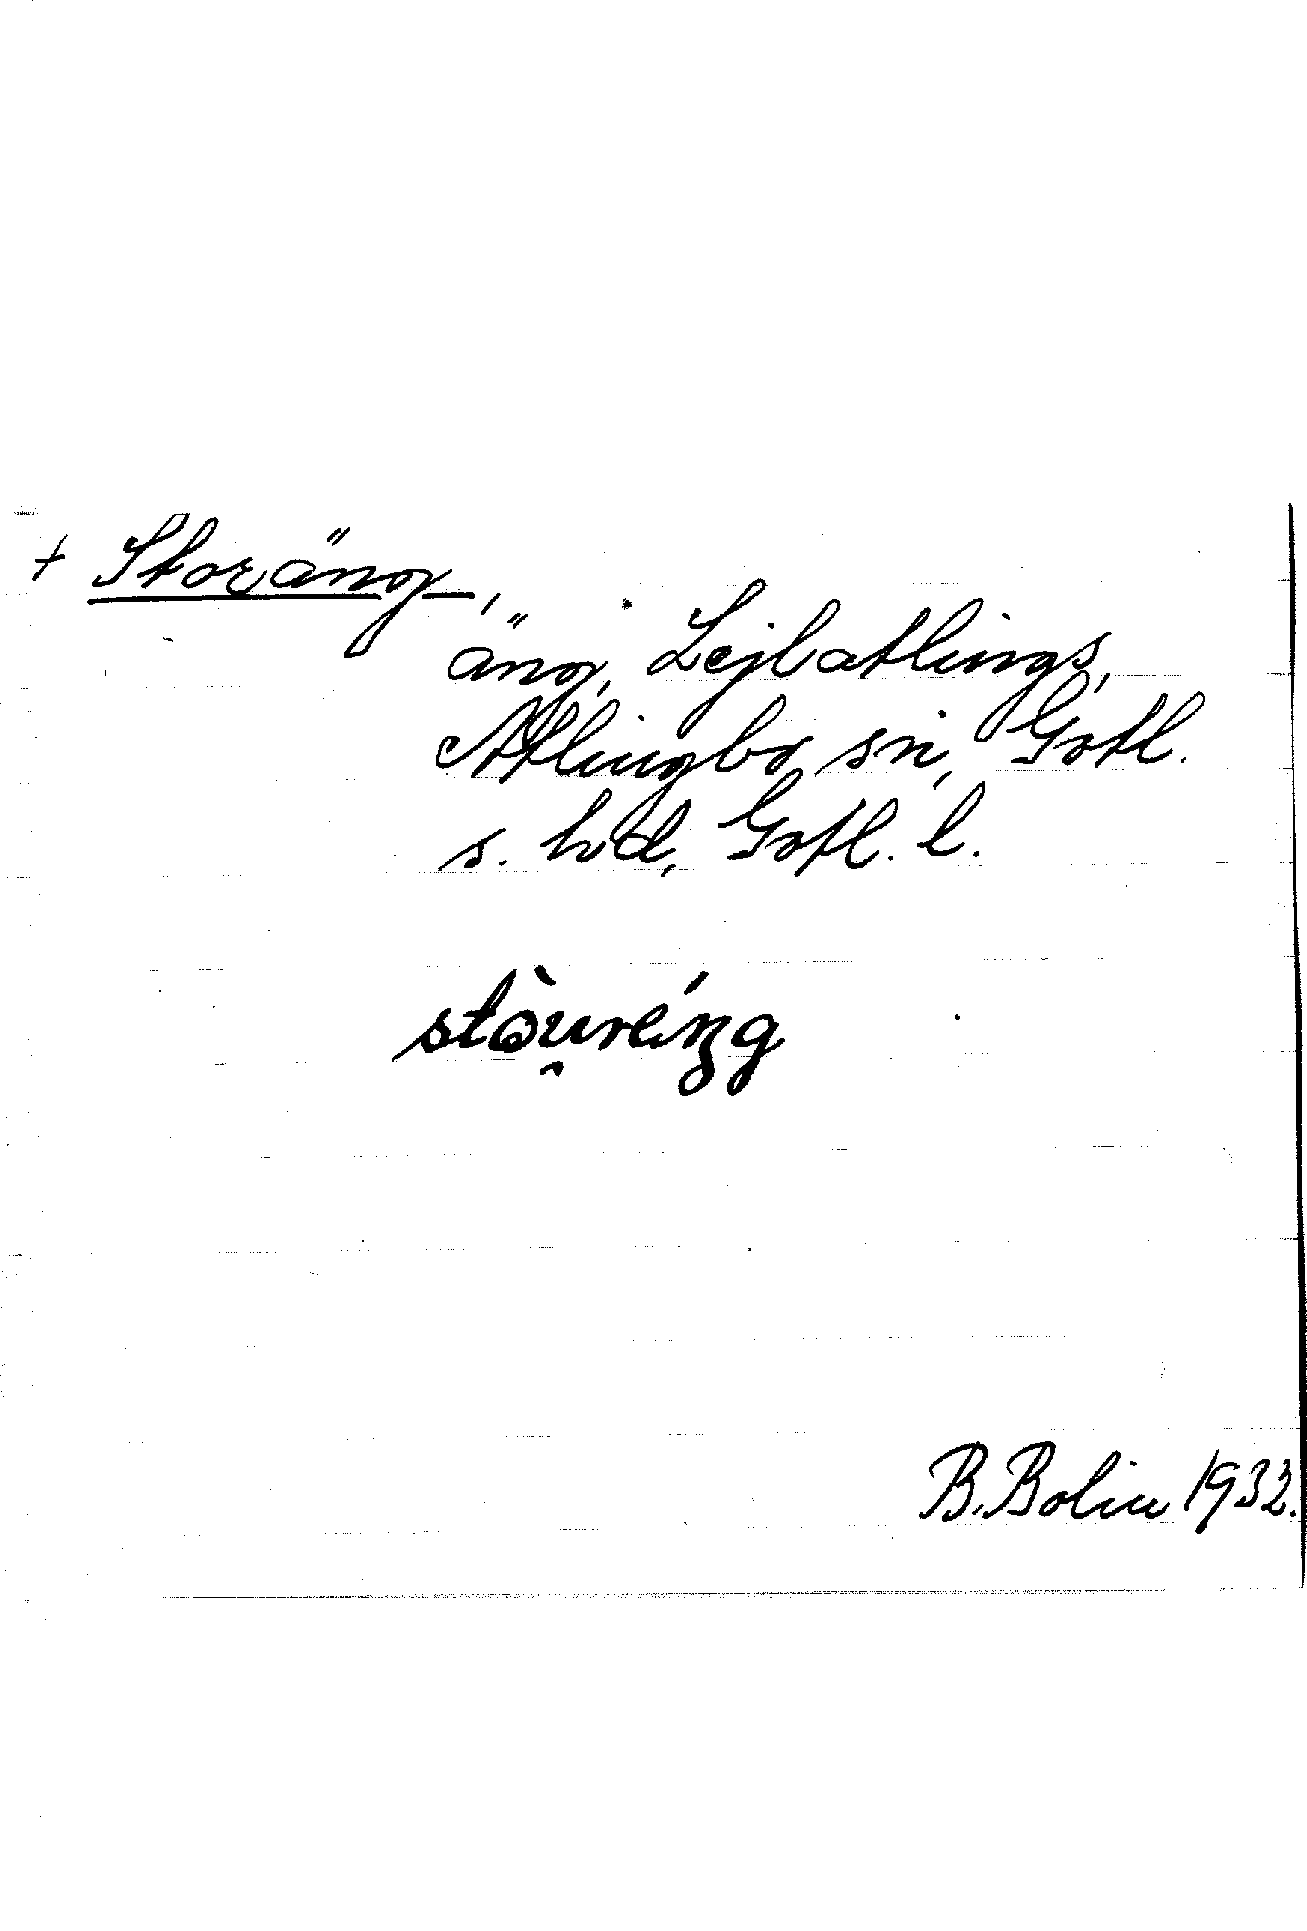 + Storäng,
äng, Lejlatlings,
Atlingbo sn, Gotl.
s. hd, Gotl. l.
stòu̯réŋg
B. Bolin 1932.